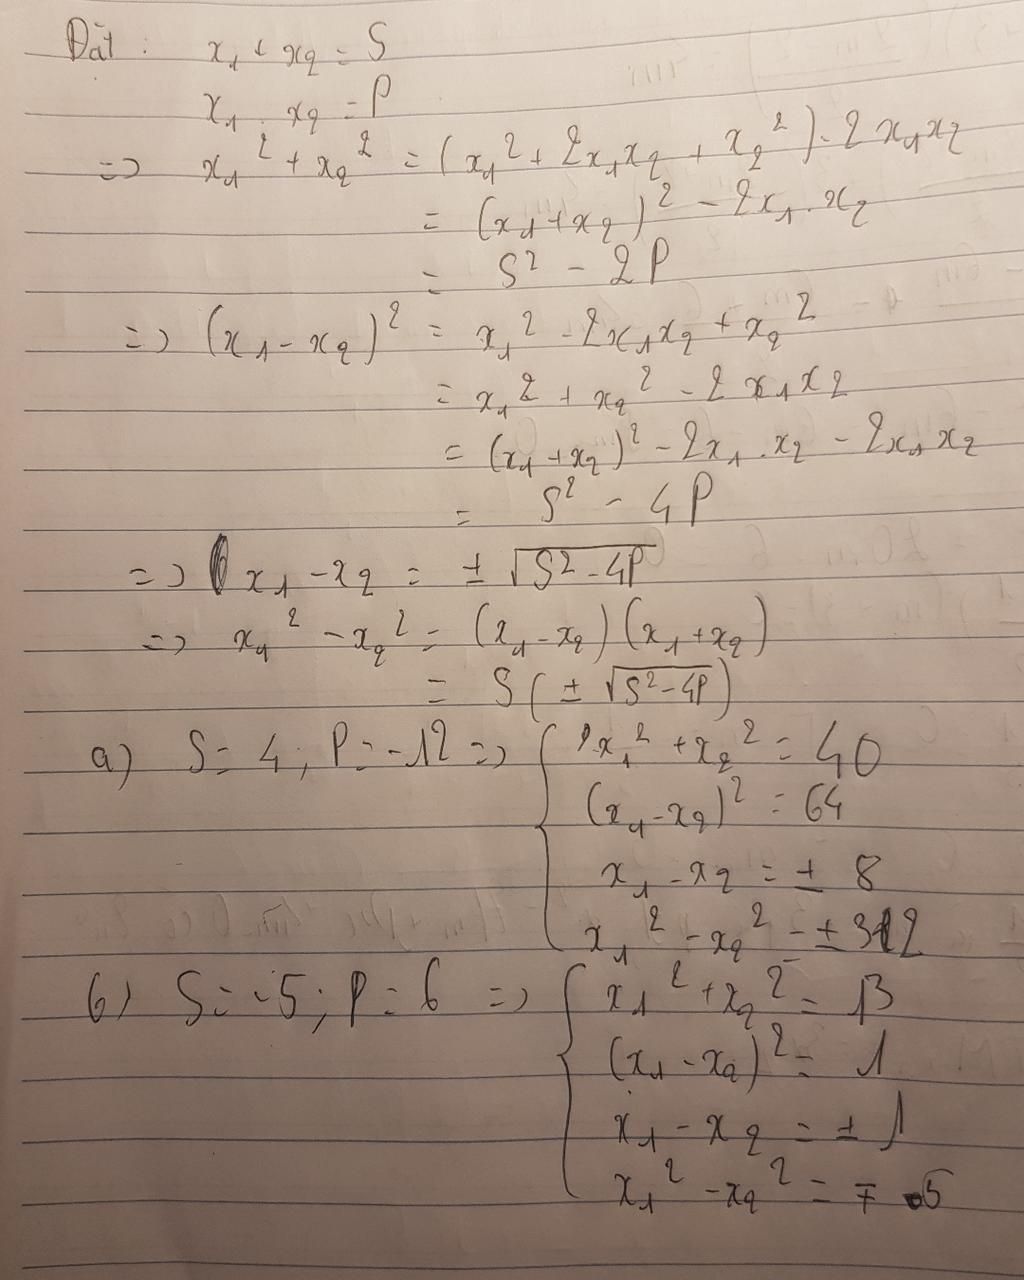 Đặt : x₁ + x₂ = S
x₁ . x₂ = P
=> x₁² + x₂² = (x₁² + 2x₁x₂ + x₂²) - 2x₁x₂
= (x₁ + x₂)² - 2x₁.x₂
= S² - 2P
=> (x₁ - x₂)² = x₁² - 2x₁x₂ + x₂²
= x₁² + x₂² - 2x₁x₂
= (x₁ + x₂)² - 2x₁.x₂ - 2x₁x₂
= S² - 4P
=> x₁ - x₂ = ± √(S² - 4P)
=> x₁² - x₂² = (x₁ - x₂)(x₁ + x₂)
= S(± √(S² - 4P))
a) S = 4 ; P = -12 => { x₁² + x₂² = 40
(x₁ - x₂)² = 64
x₁ - x₂ = ± 8
x₁² - x₂² = ± 32
b) S = -5 ; P = 6 => { x₁² + x₂² = 13
(x₁ - x₂)² = 1
x₁ - x₂ = ± 1
x₁² - x₂² = ∓ 5